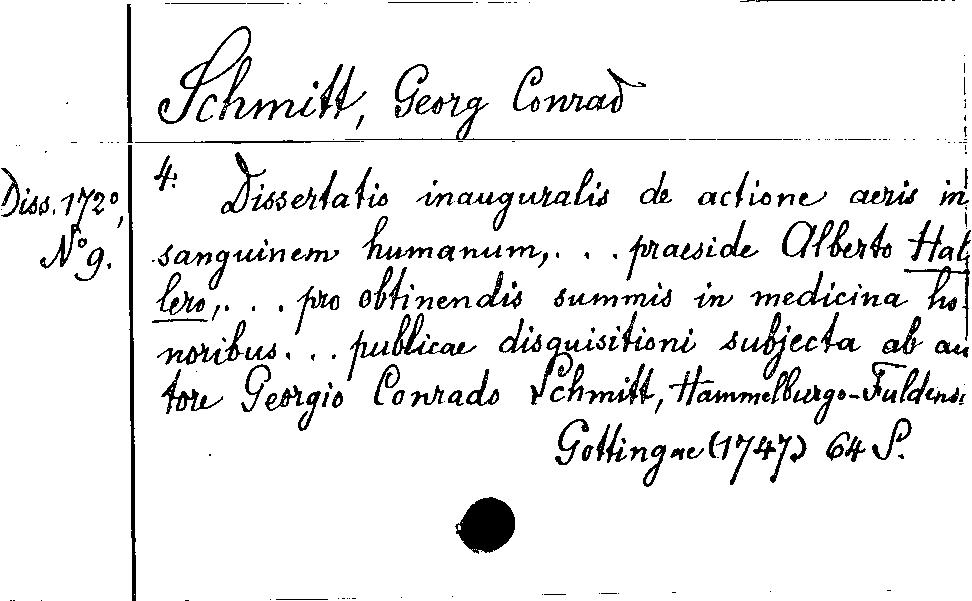 Schmitt, Georg Conrad
Diss. 172⁰,
N⁰ 9.
4: Dissertatio inauguralis de actione aeris in
sanguinem humanum, . . . praeside Alberto Hal
lero, . . . pro obtinendis summis in medicina ho-
noribus . . . publicae disquisitioni subjecta ab au
tore Georgio Conrado Schmitt, Hammelburgo-Fuldensi
Gottingae (1747) 64 S.